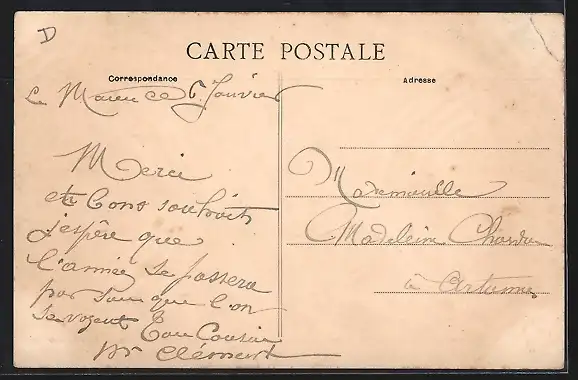 D
CARTE POSTALE
Correspondance
Adresse
Le ce 6 Janvier
Merci
et Bons souhaits
j'espère que
l'année se passera
pas sans que l'on
se voyent Ton Cousin
Clément
Mademoiselle
Madeleine
à Artannes